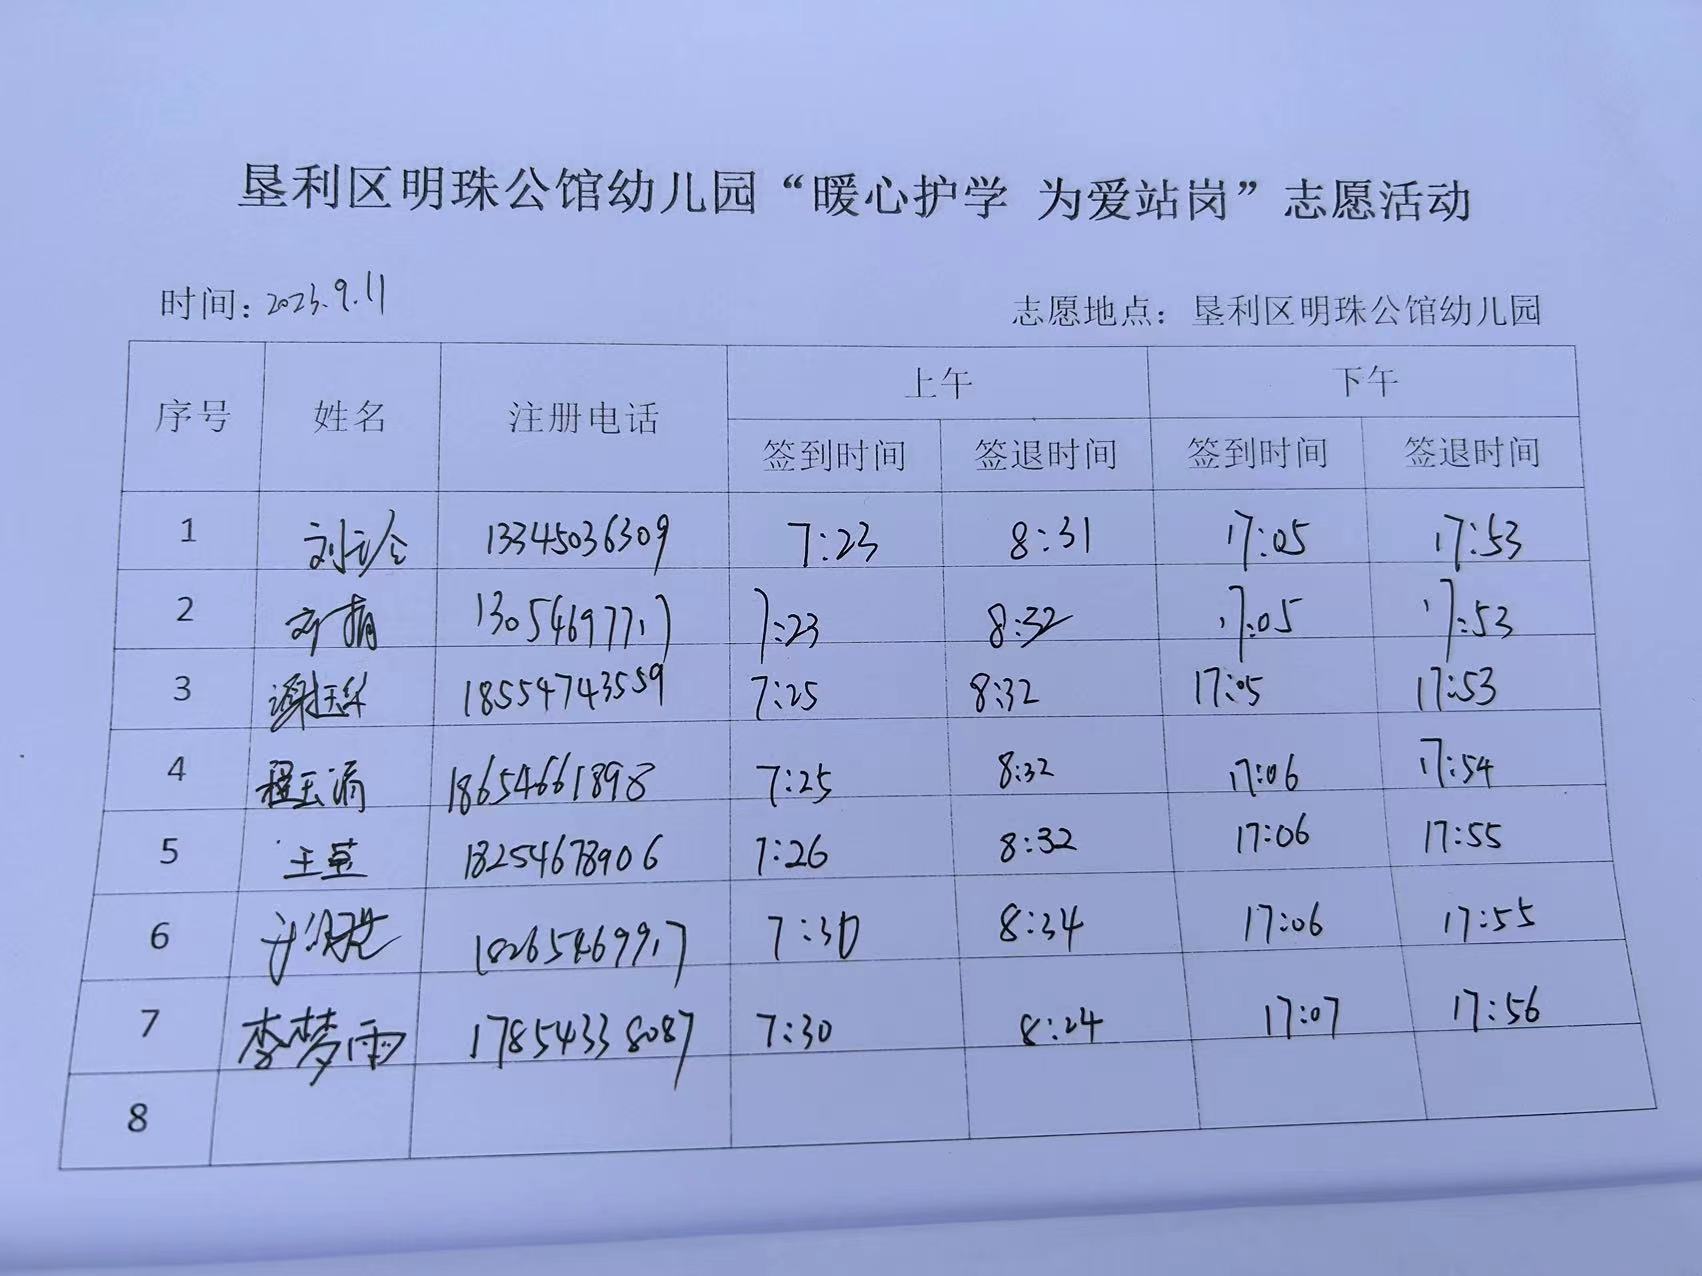 垦利区明珠公馆幼儿园“暖心护学 为爱站岗”志愿活动
时间: 2023.9.11 志愿地点：垦利区明珠公馆幼儿园
序号 姓名 注册电话 上午 下午
签到时间 签退时间 签到时间 签退时间
1 刘 13345036309 7:23 8:31 17:05 17:53
2 13054697717 7:23 8:32 17:05 17:53
3 谢 18554743559 7:25 8:32 17:05 17:53
4 程玉涓 18654661898 7:25 8:32 17:06 17:54
5 王 18254678906 7:26 8:32 17:06 17:55
6 18265469917 7:30 8:34 17:06 17:55
7 李梦雨 17854338087 7:30 8:24 17:07 17:56
8